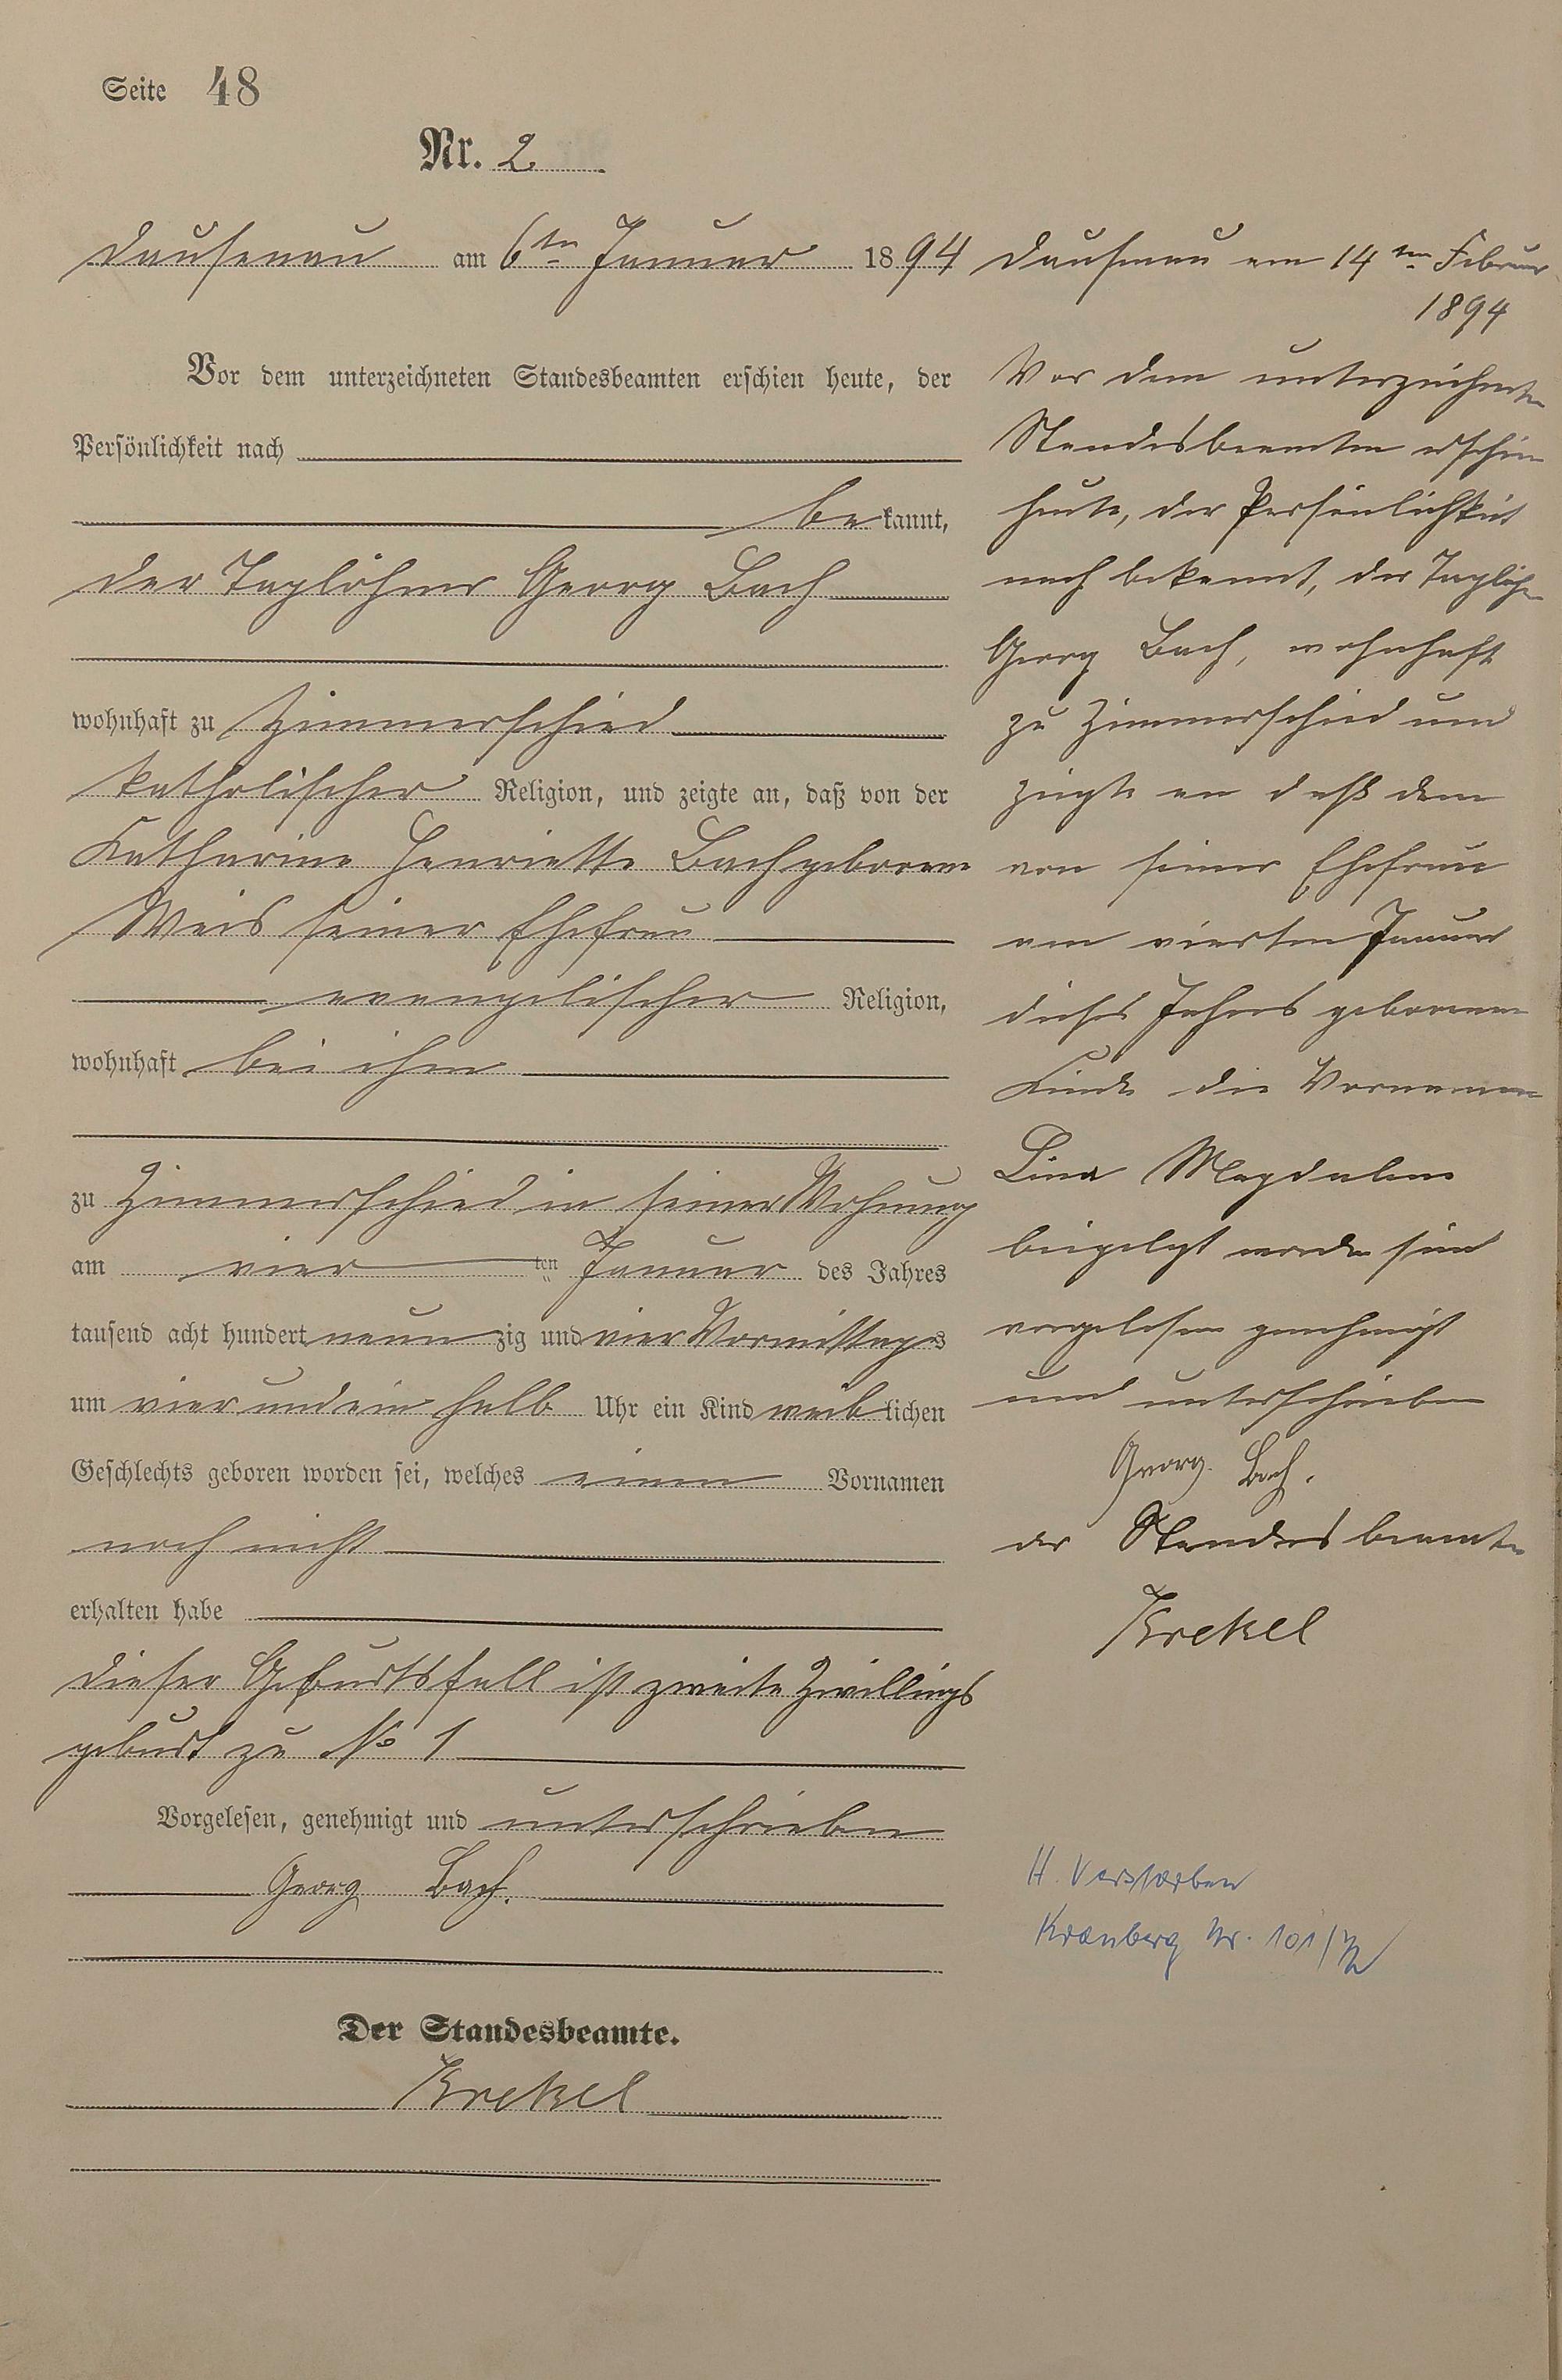 Seite 48
Nr. 2
Dausenau am 6ten Januar 1894
Vor dem unterzeichneten Standesbeamten erschien heute, der
Persönlichkeit nach
bekannt,
der Taglöhner Georg Bach
wohnhaft zu Zimmerschied
katholischer Religion, und zeigte an, daß von der
Katharine Henriette Bach geborene
Weis seiner Ehefrau
evangelischer Religion,
wohnhaft bei ihm
zu Zimmerschied in seiner Wohnung
am vier ten Januar des Jahres
tausend acht hundert neunzig und vier Vormittags
um vier und ein halb Uhr ein Kind weiblichen
Geschlechts geboren worden sei, welches einen Vornamen
noch nicht
erhalten habe
Dieser Geburtsfall ist zweite Zwillings
geburt zu No 1
Vorgelesen, genehmigt und unterschrieben
Georg Bach.
Der Standesbeamte.
Krekel
Dausenau am 14ten Februar
1894
Vor dem unterzeichneten
Standesbeamten erschien
heute, der Persönlichkeit
nach bekannt, der Taglöhner
Georg Bach, wohnhaft
zu Zimmerschied und
zeigte an daß dem
von seiner Ehefrau
am vierten Januar
dieses Jahres geborenen
Kinde die Vornamen
Lina Magdalene
beigelegt worden sind
vorgelesen genehmigt
und unterschrieben
Georg Bach.
der Standesbeamte
Krekel
H. Verstorben
Kronberg Nr. 101/72